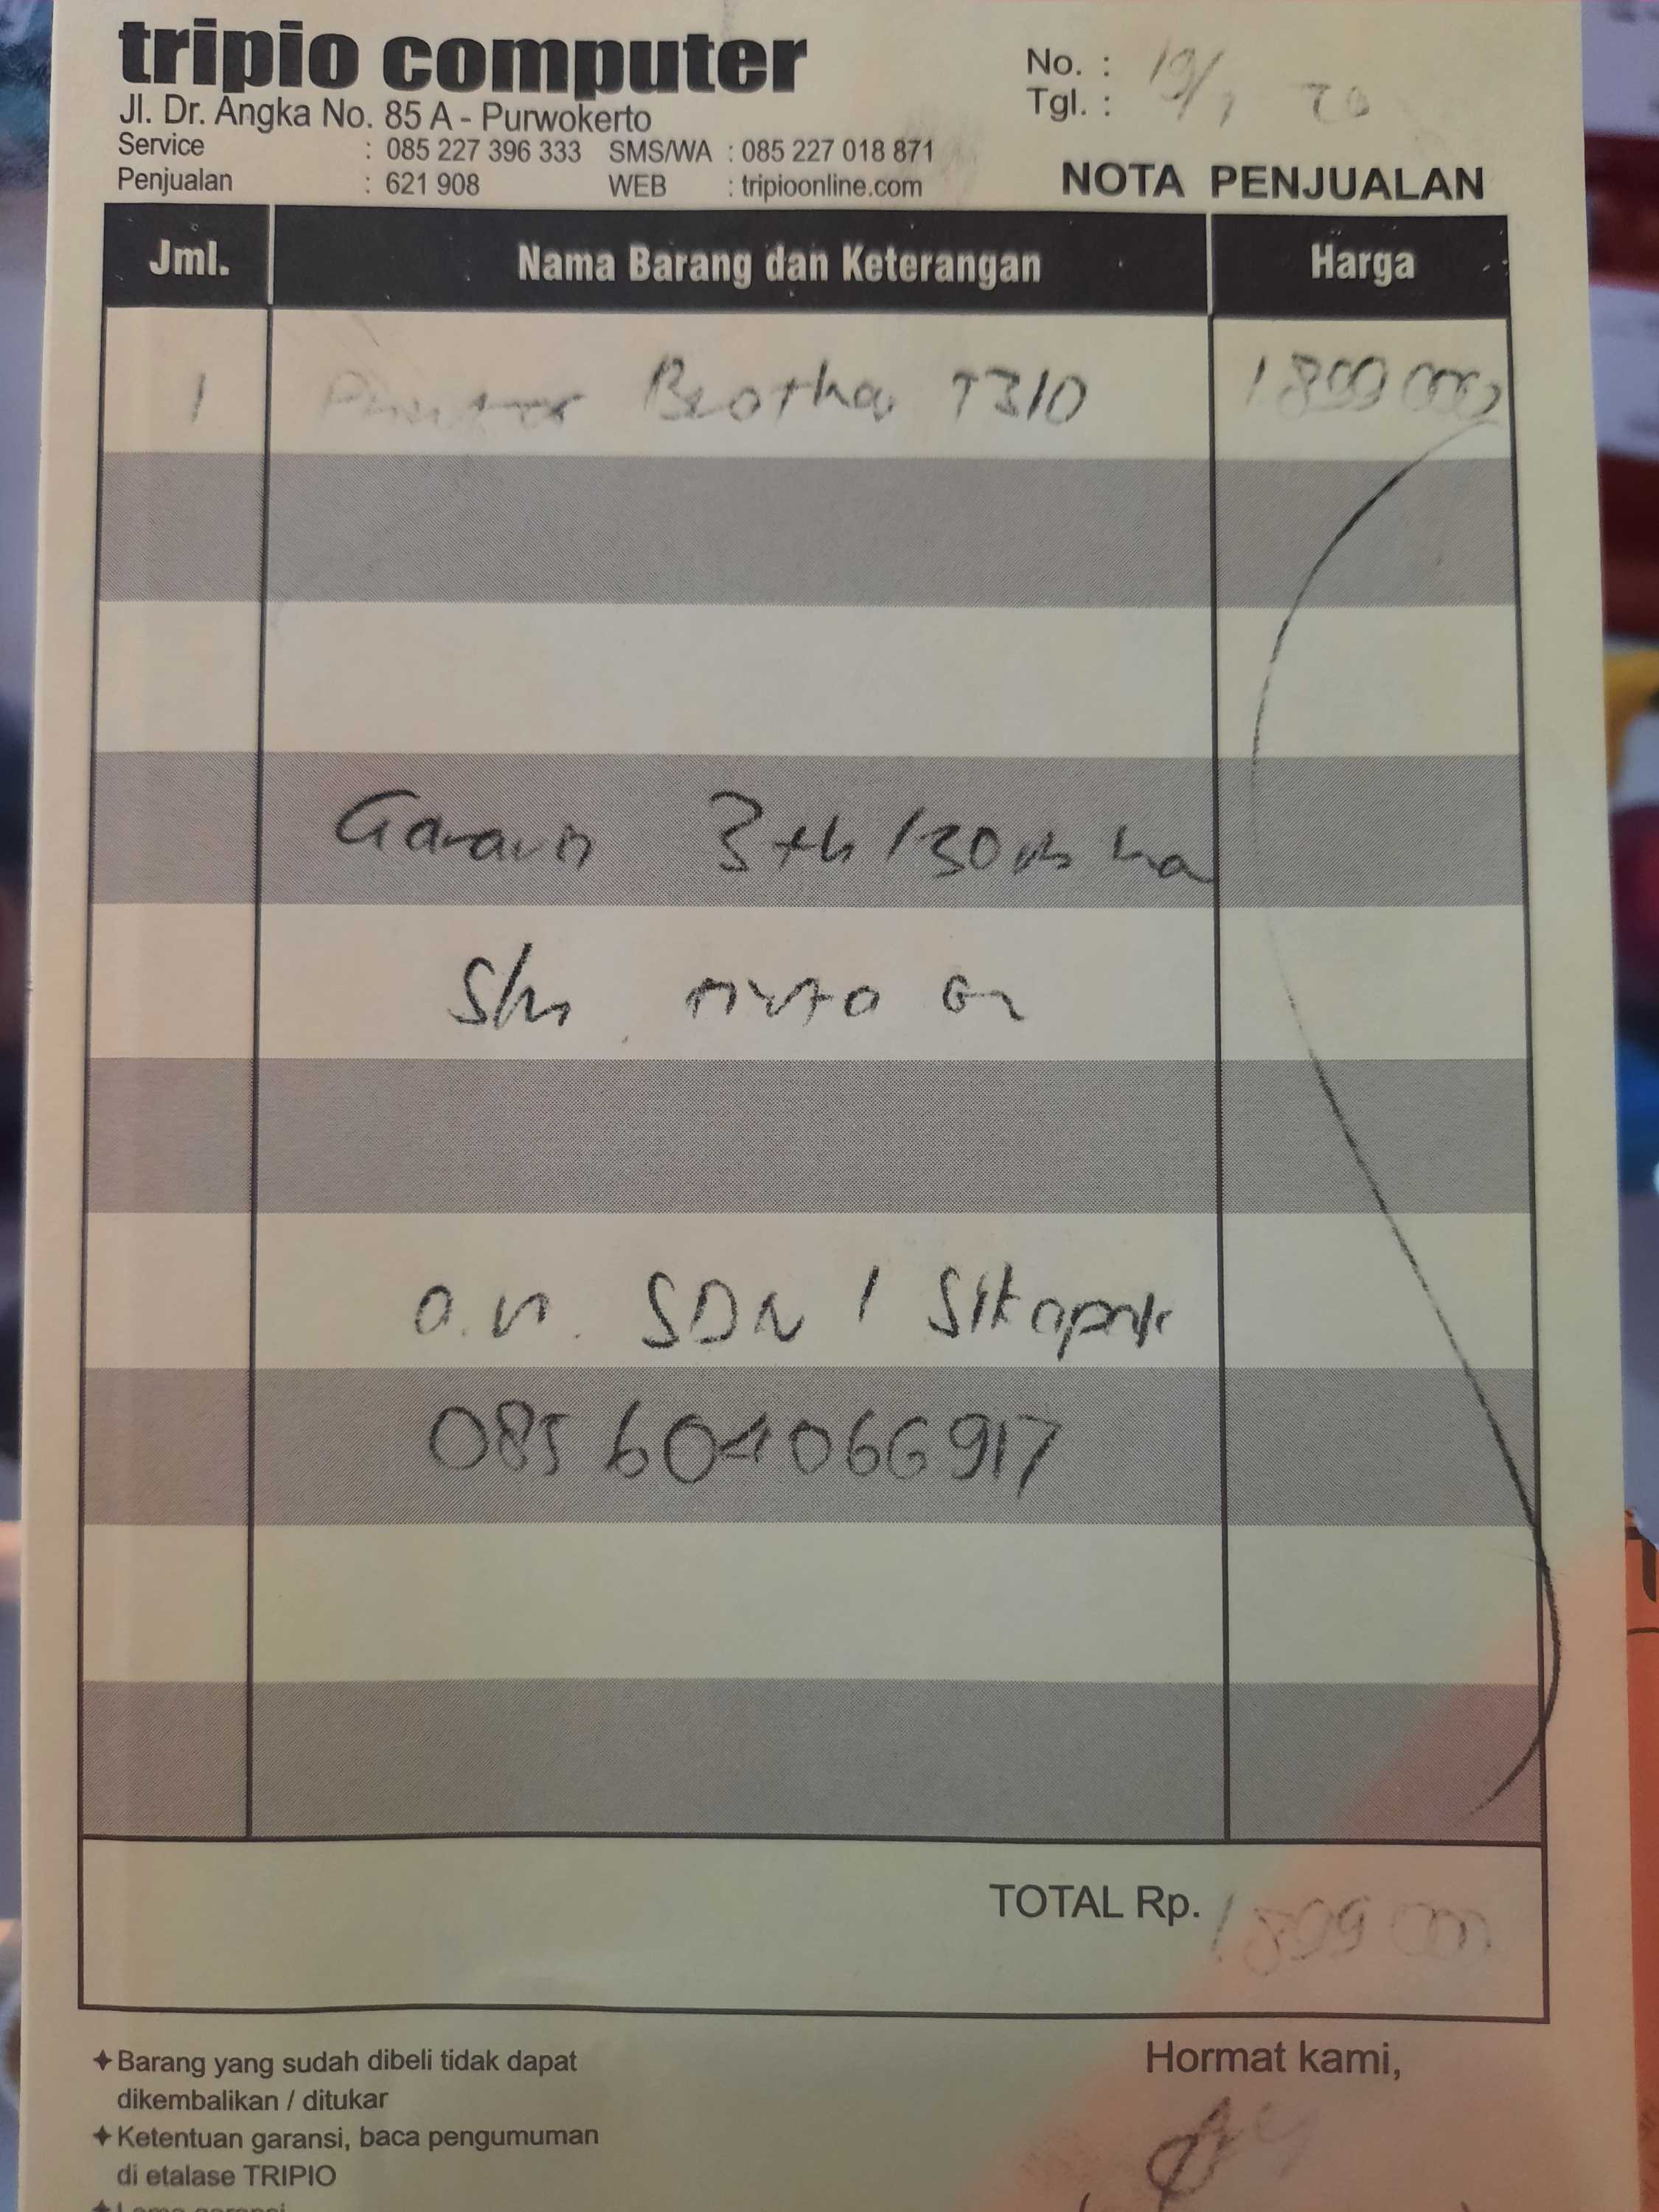 tripio computer
Jl. Dr. Angka No. 85 A - Purwokerto
Service : 085 227 396 333 SMS/WA : 085 227 018 871
Penjualan : 621 908 WEB : tripioonline.com
No. :
Tgl. : 19/
NOTA PENJUALAN
Jml. Nama Barang dan Keterangan Harga
1 Printer Brother T310 1899000
3 th /
a.n. SDN 1
TOTAL Rp. 1899000
Barang yang sudah dibeli tidak dapat
dikembalikan / ditukar
Ketentuan garansi, baca pengumuman
di etalase TRIPIO
Hormat kami,